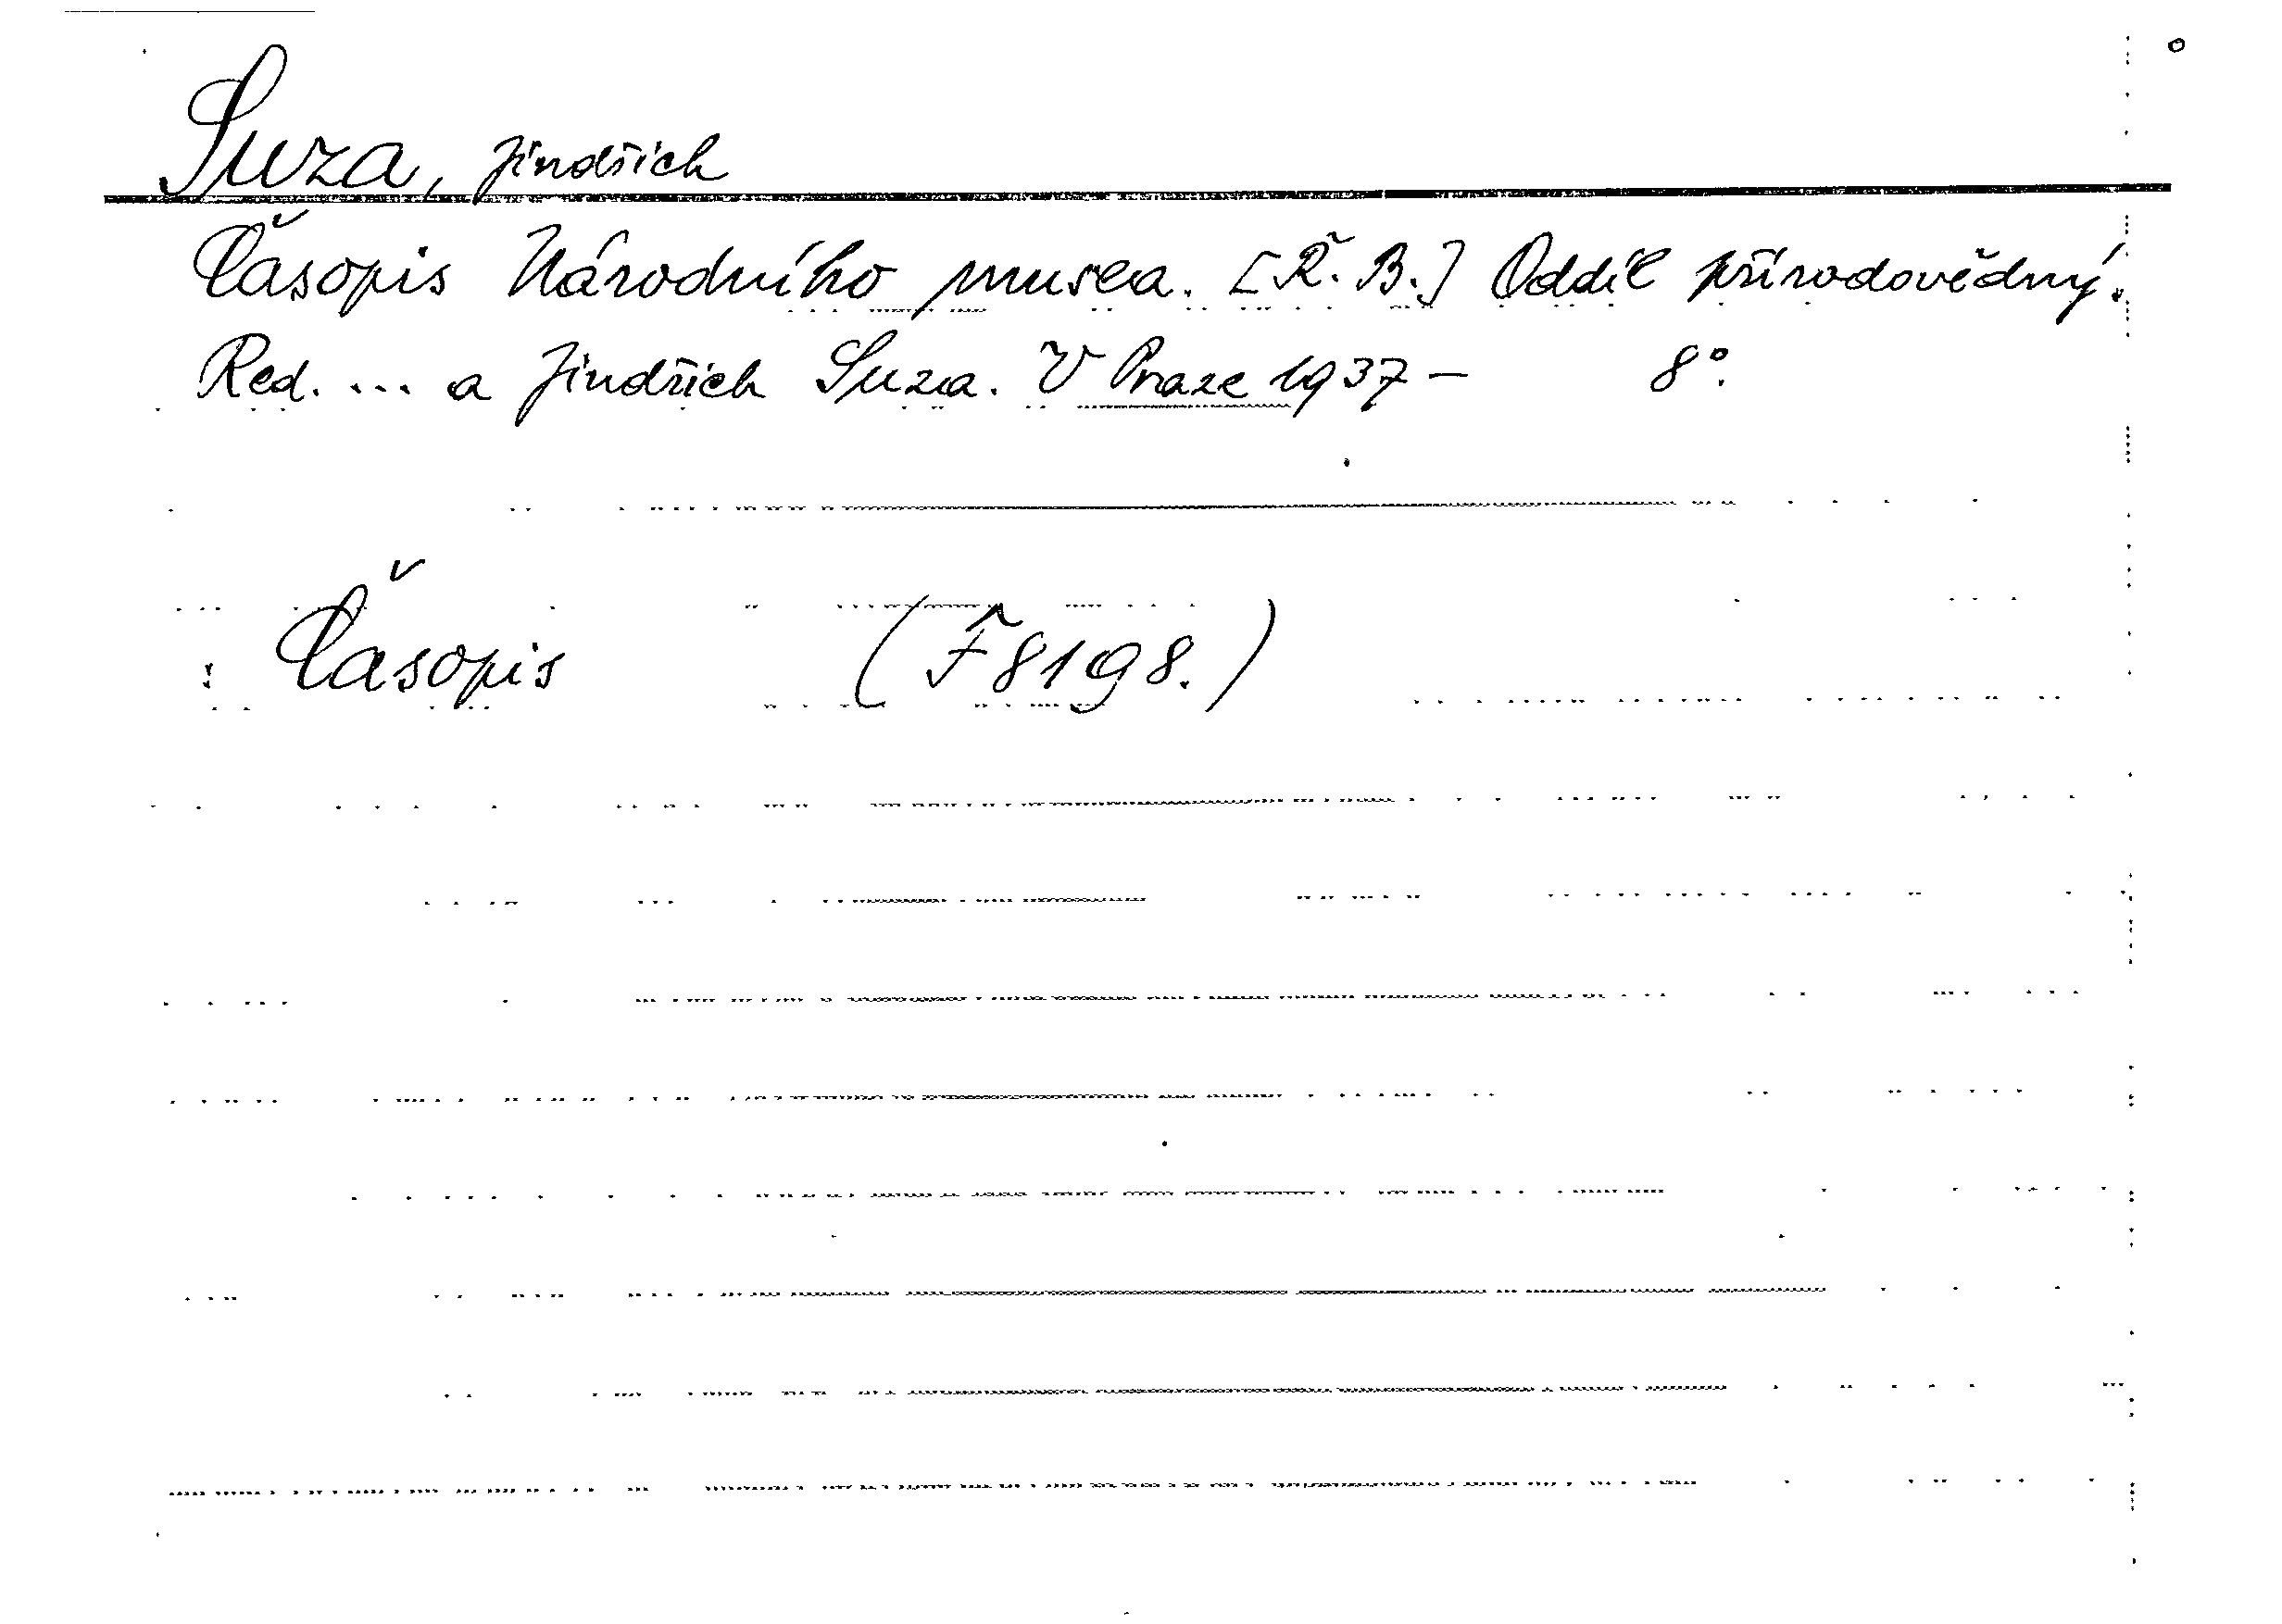 Suza, Jindřich
Časopis Národního musea. [Ř. B.] Oddíl přírodovědný.
Red. ... a Jindřich Suza. V Praze 1937– 8°.
Časopis (F 8198.)